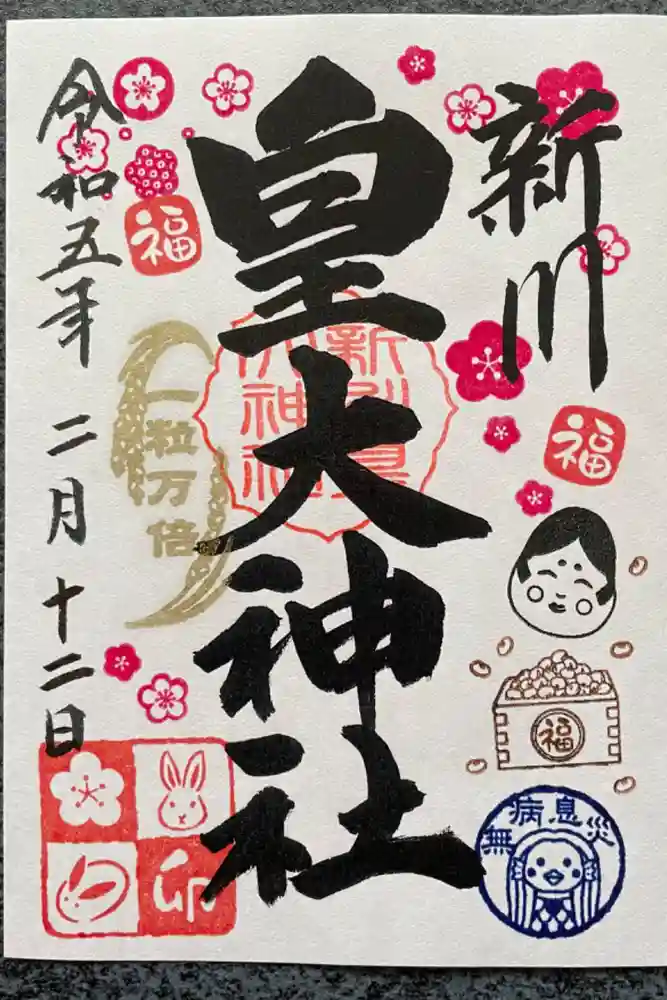 新川
皇大神社
令和五年 二月 十二日
福
一粒万倍
新川皇
大神社
福
福
無病息災
卯